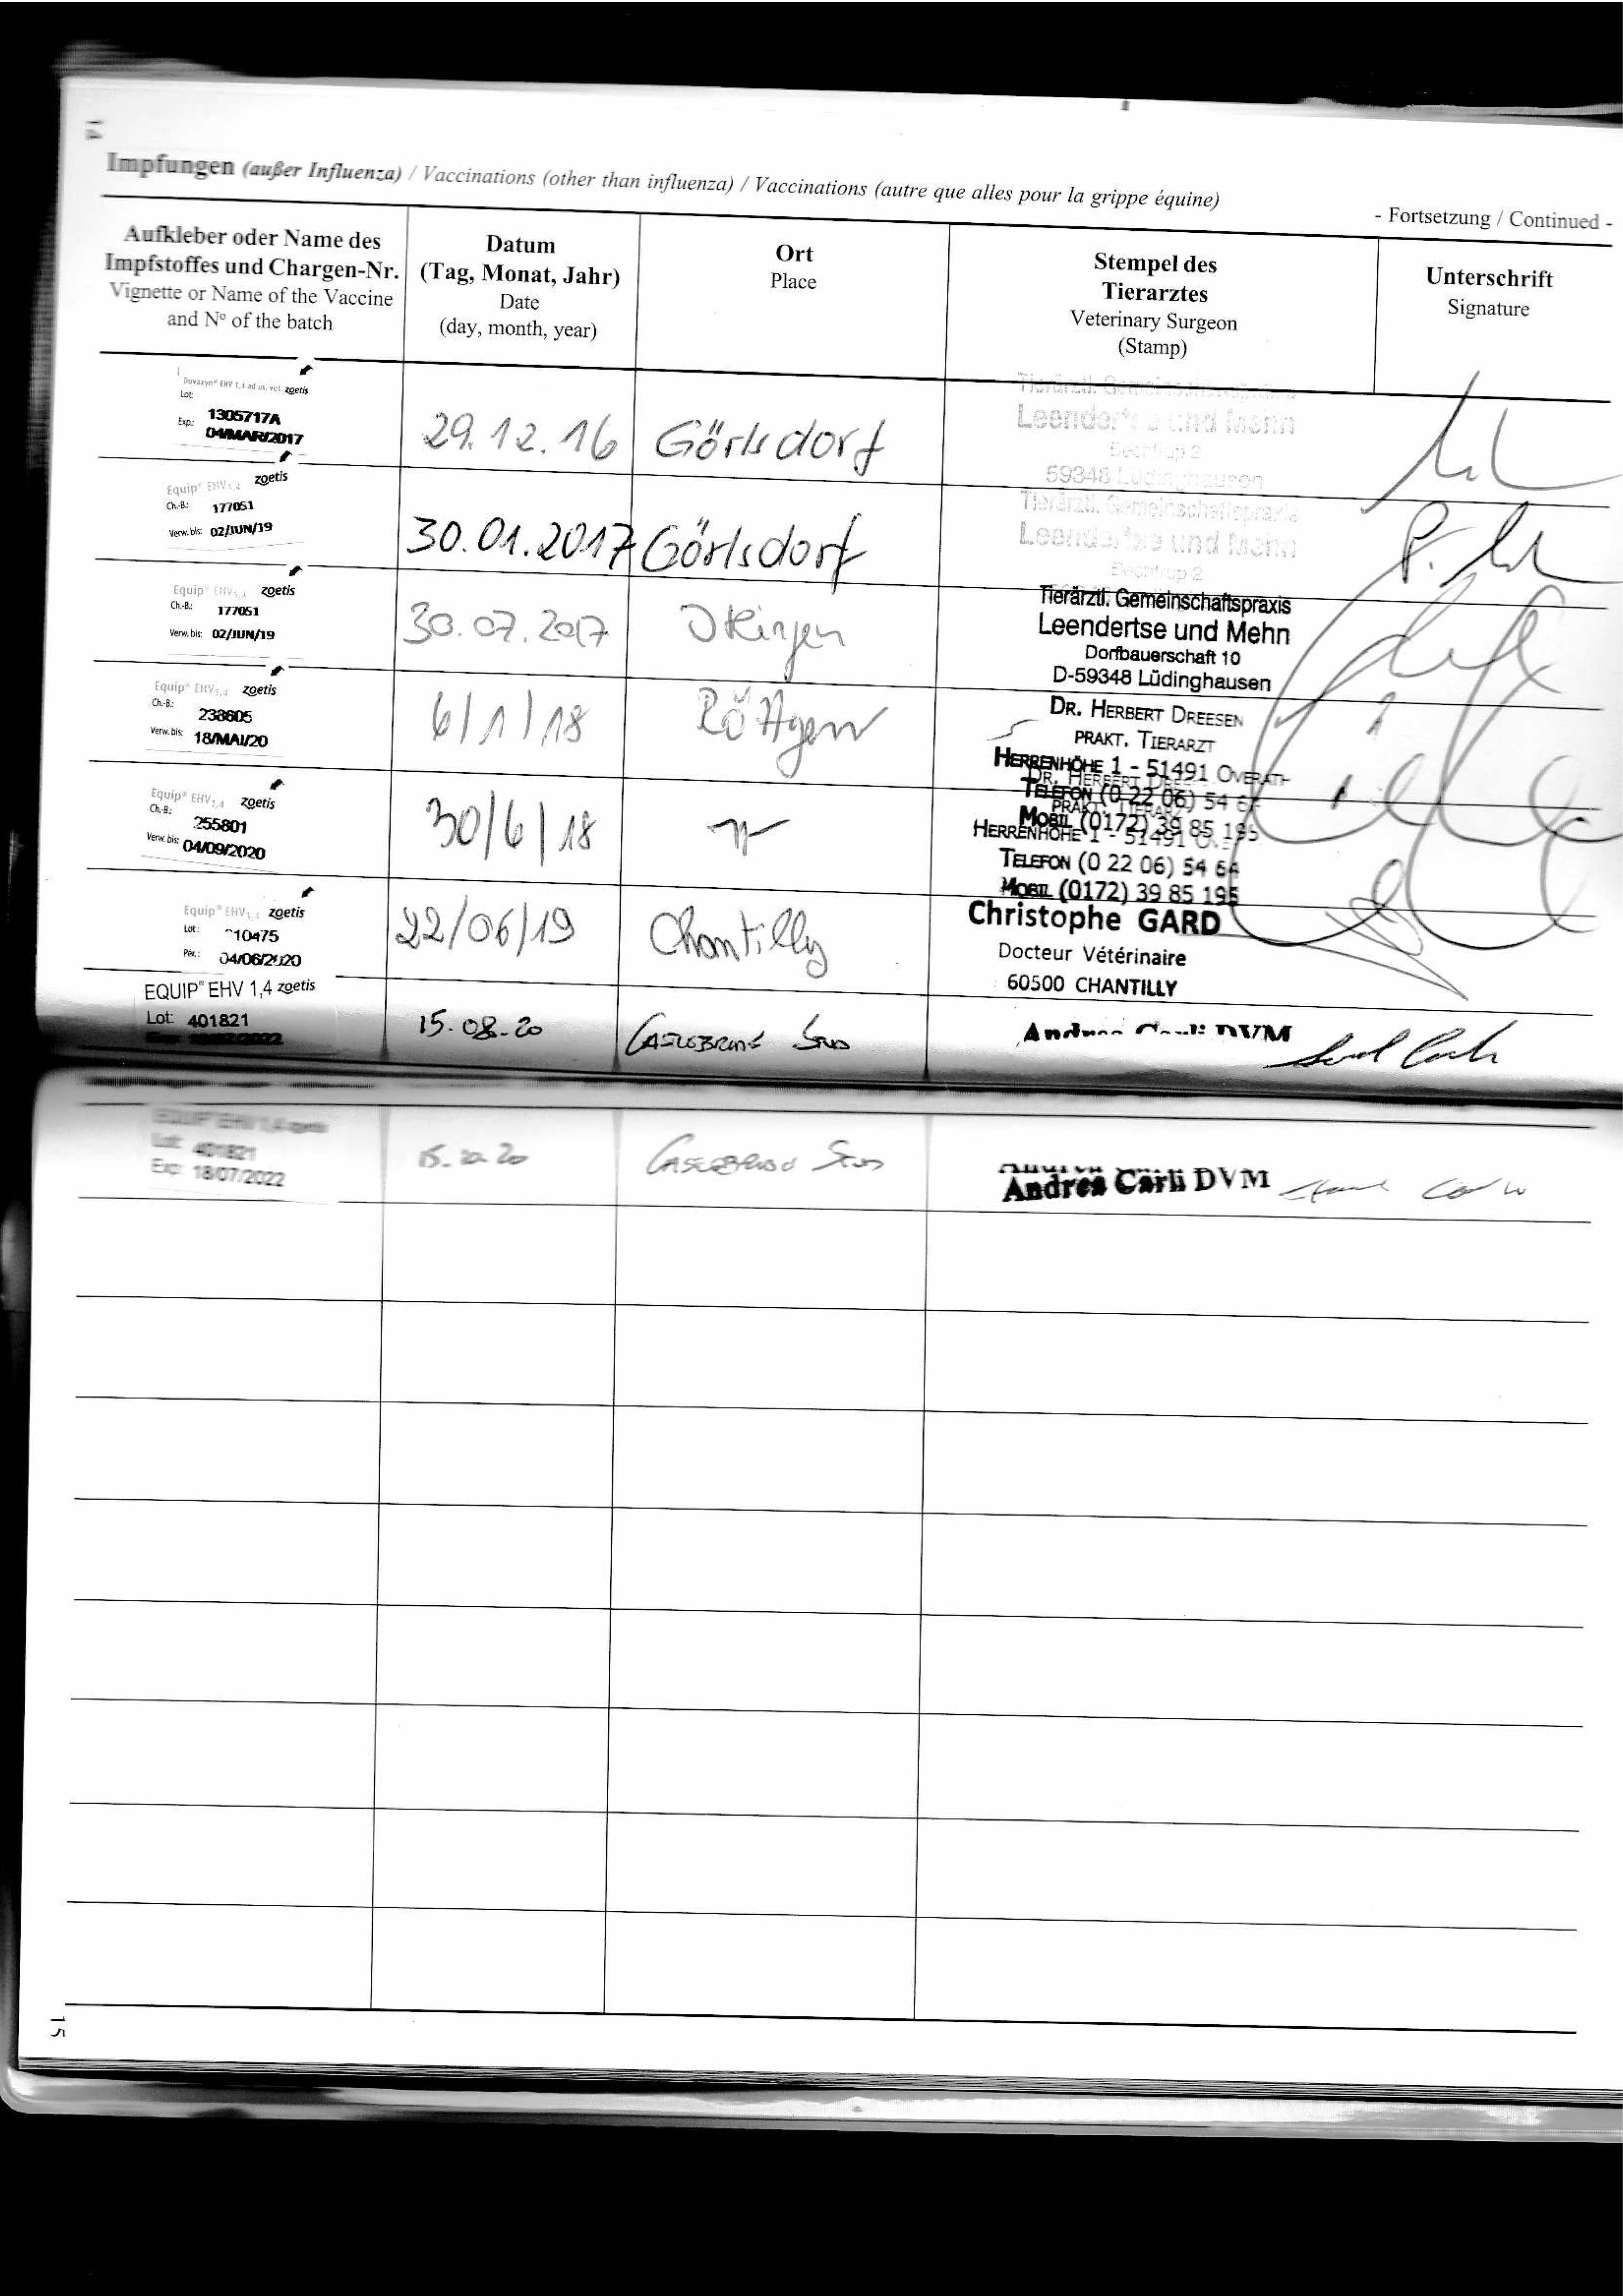 14
Impfungen (außer Influenza) / Vaccinations (other than influenza) / Vaccinations (autre que alles pour la grippe équine)
- Fortsetzung / Continued -
Aufkleber oder Name des
Impfstoffes und Chargen-Nr.
Vignette or Name of the Vaccine
and N° of the batch
Datum
(Tag, Monat, Jahr)
Date
(day, month, year)
Ort
Place
Stempel des
Tierarztes
Veterinary Surgeon
(Stamp)
Unterschrift
Signature
Duvaxyn® EHV 1,4 ad us. vet. zoetis
Lot:
1305717A
Exp.: 04/MAR/2017
29.12.16
Görlsdorf
Tierärztl. Gemeinschaftspraxis
Leendertse und Mehn
Bechtrup 2
59348 Lüdinghausen
Equip® EHV1,4 zoetis
Ch.-B.: 177051
Verw. bis: 02/JUN/19
30.01.2017
Görlsdorf
Tierärztl. Gemeinschaftspraxis
Leendertse und Mehn
Bechtrup 2
Equip® EHV1,4 zoetis
Ch.-B.: 177051
Verw. bis: 02/JUN/19
30.07.2017
Tierärztl. Gemeinschaftspraxis
Leendertse und Mehn
Dorfbauerschaft 10
D-59348 Lüdinghausen
Equip® EHV1,4 zoetis
Ch.-B.:
238605
Verw. bis: 18/MAI/20
6/1/18
Röttgen
DR. HERBERT DREESEN
PRAKT. TIERARZT
HERRENHÖHE 1 - 51491 OVERATH
TELEFON (0 22 06) 54 64
MOBIL (0172) 39 85 195
Equip® EHV1,4 zoetis
Ch.-B.:
255801
Verw. bis: 04/09/2020
30/6/18
DR. HERBERT
PRAKT. TIERARZT
HERRENHÖHE 1 - 51491
TELEFON (0 22 06) 54 64
MOBIL (0172) 39 85 195
Equip® EHV1,4 zoetis
Lot: 10475
Pér.: 04/06/2020
22/06/19
Chantilly
Christophe GARD
Docteur Vétérinaire
60500 CHANTILLY
EQUIP® EHV 1,4 zoetis
Lot: 401821
15.08.20
Andrea Carli DVM
EQUIP® EHV 1,4 zoetis
Lot: 401821
Exp: 18/07/2022
Andrea Carli DVM
15